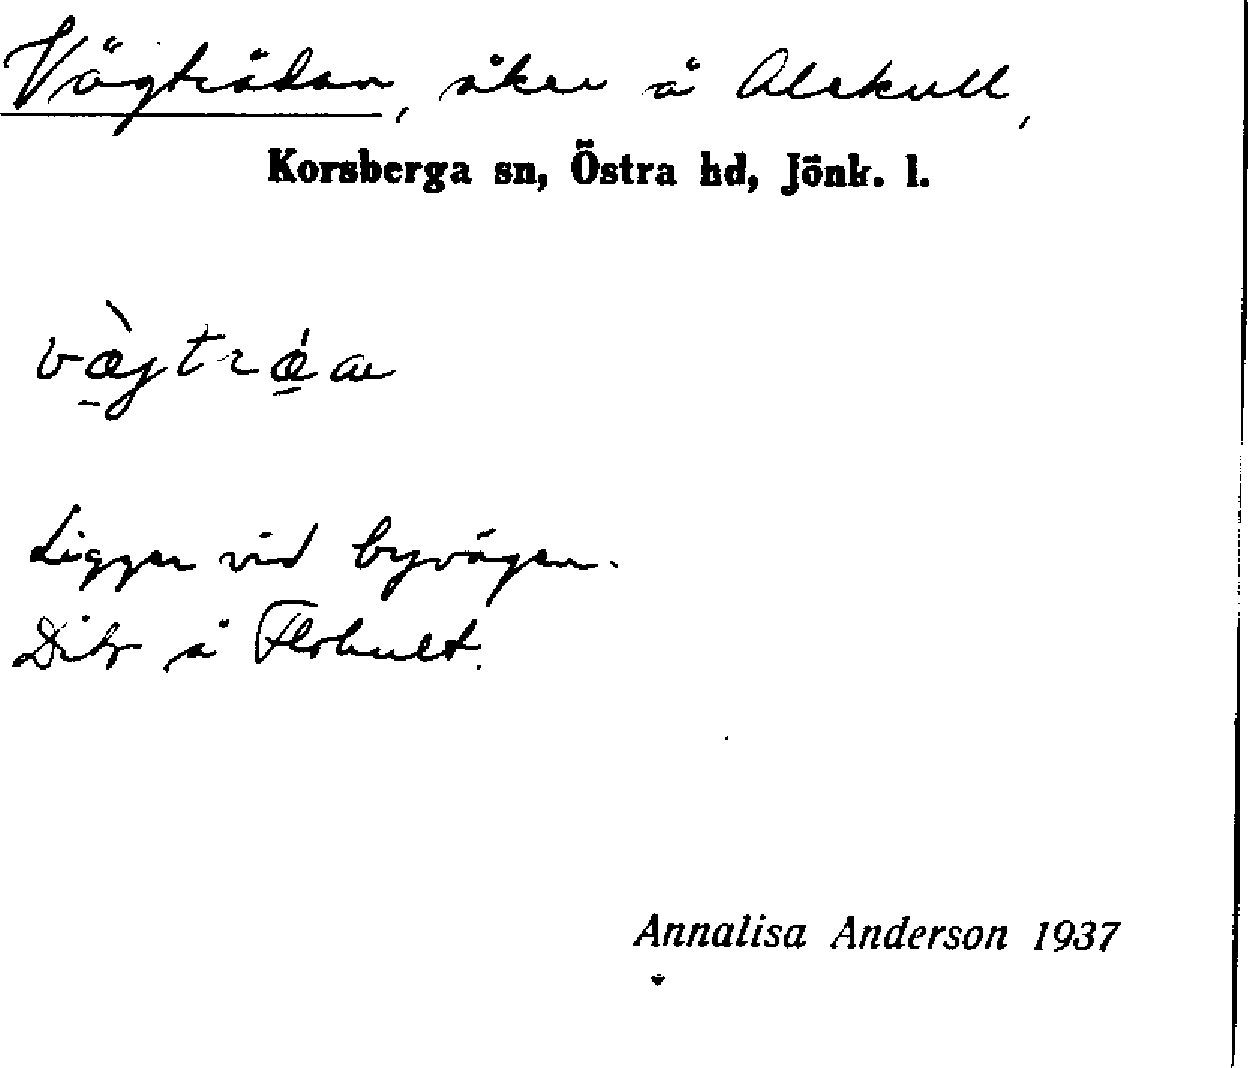 Vägträdan, åker å Alekull,
Korsberga sn, Östra hd, Jönk. l.
Ligger vid byvägen.
Dito å Flohult.
Annalisa Anderson 1937